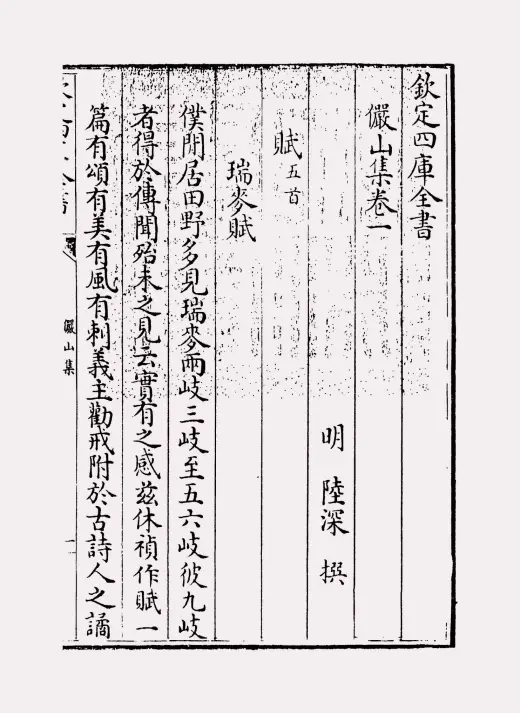 欽定四庫全書
儼山集卷一
明 陸深 撰
賦五首
瑞麥賦
僕閒居田野多見瑞麥兩岐三岐至五六岐彼九岐
者得於傳聞殆未之見云實有之感兹休禎作賦一
篇有頌有美有風有刺義主勸戒附於古詩人之譎
儼山集
一